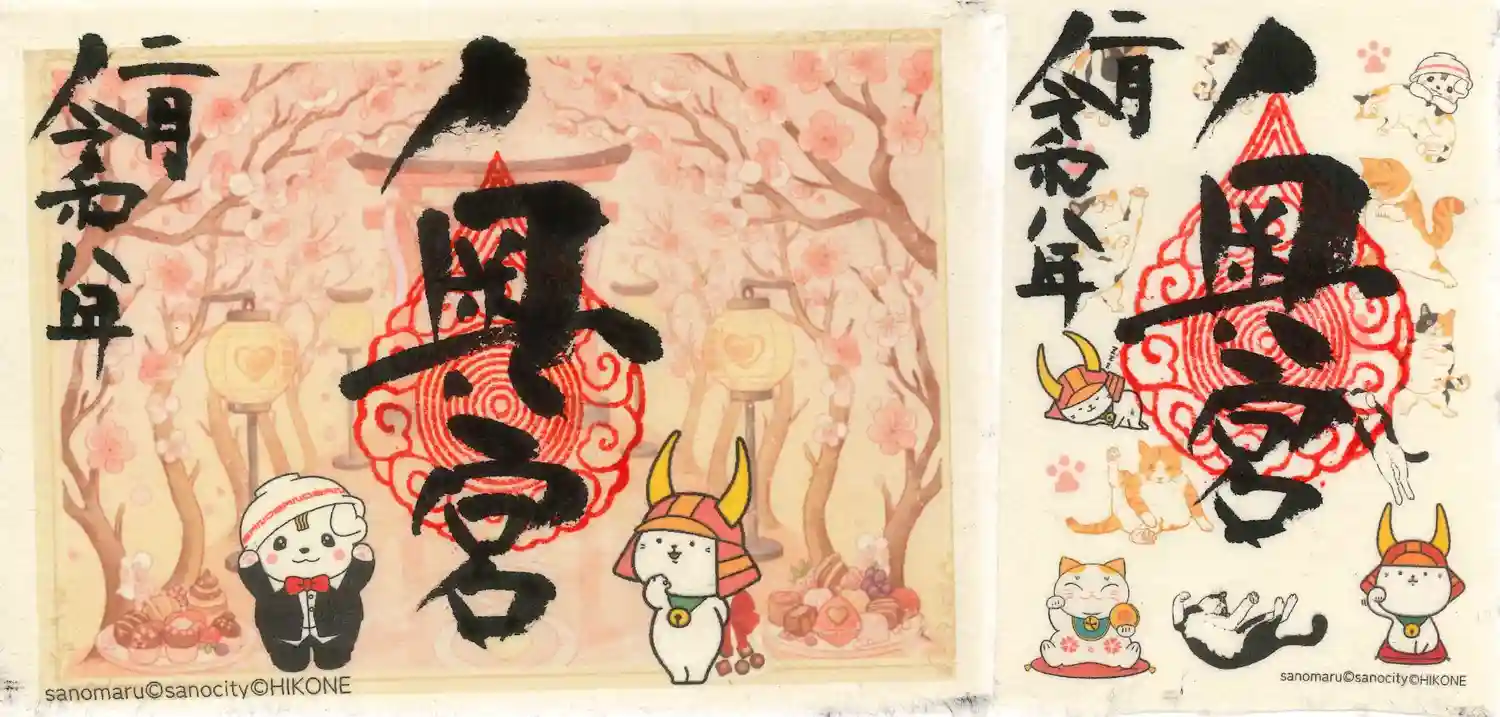 奥宮
二月
令和八年
sanomaru©sanocity©HIKONE
奥宮
二月
令和八年
sanomaru©sanocity©HIKONE